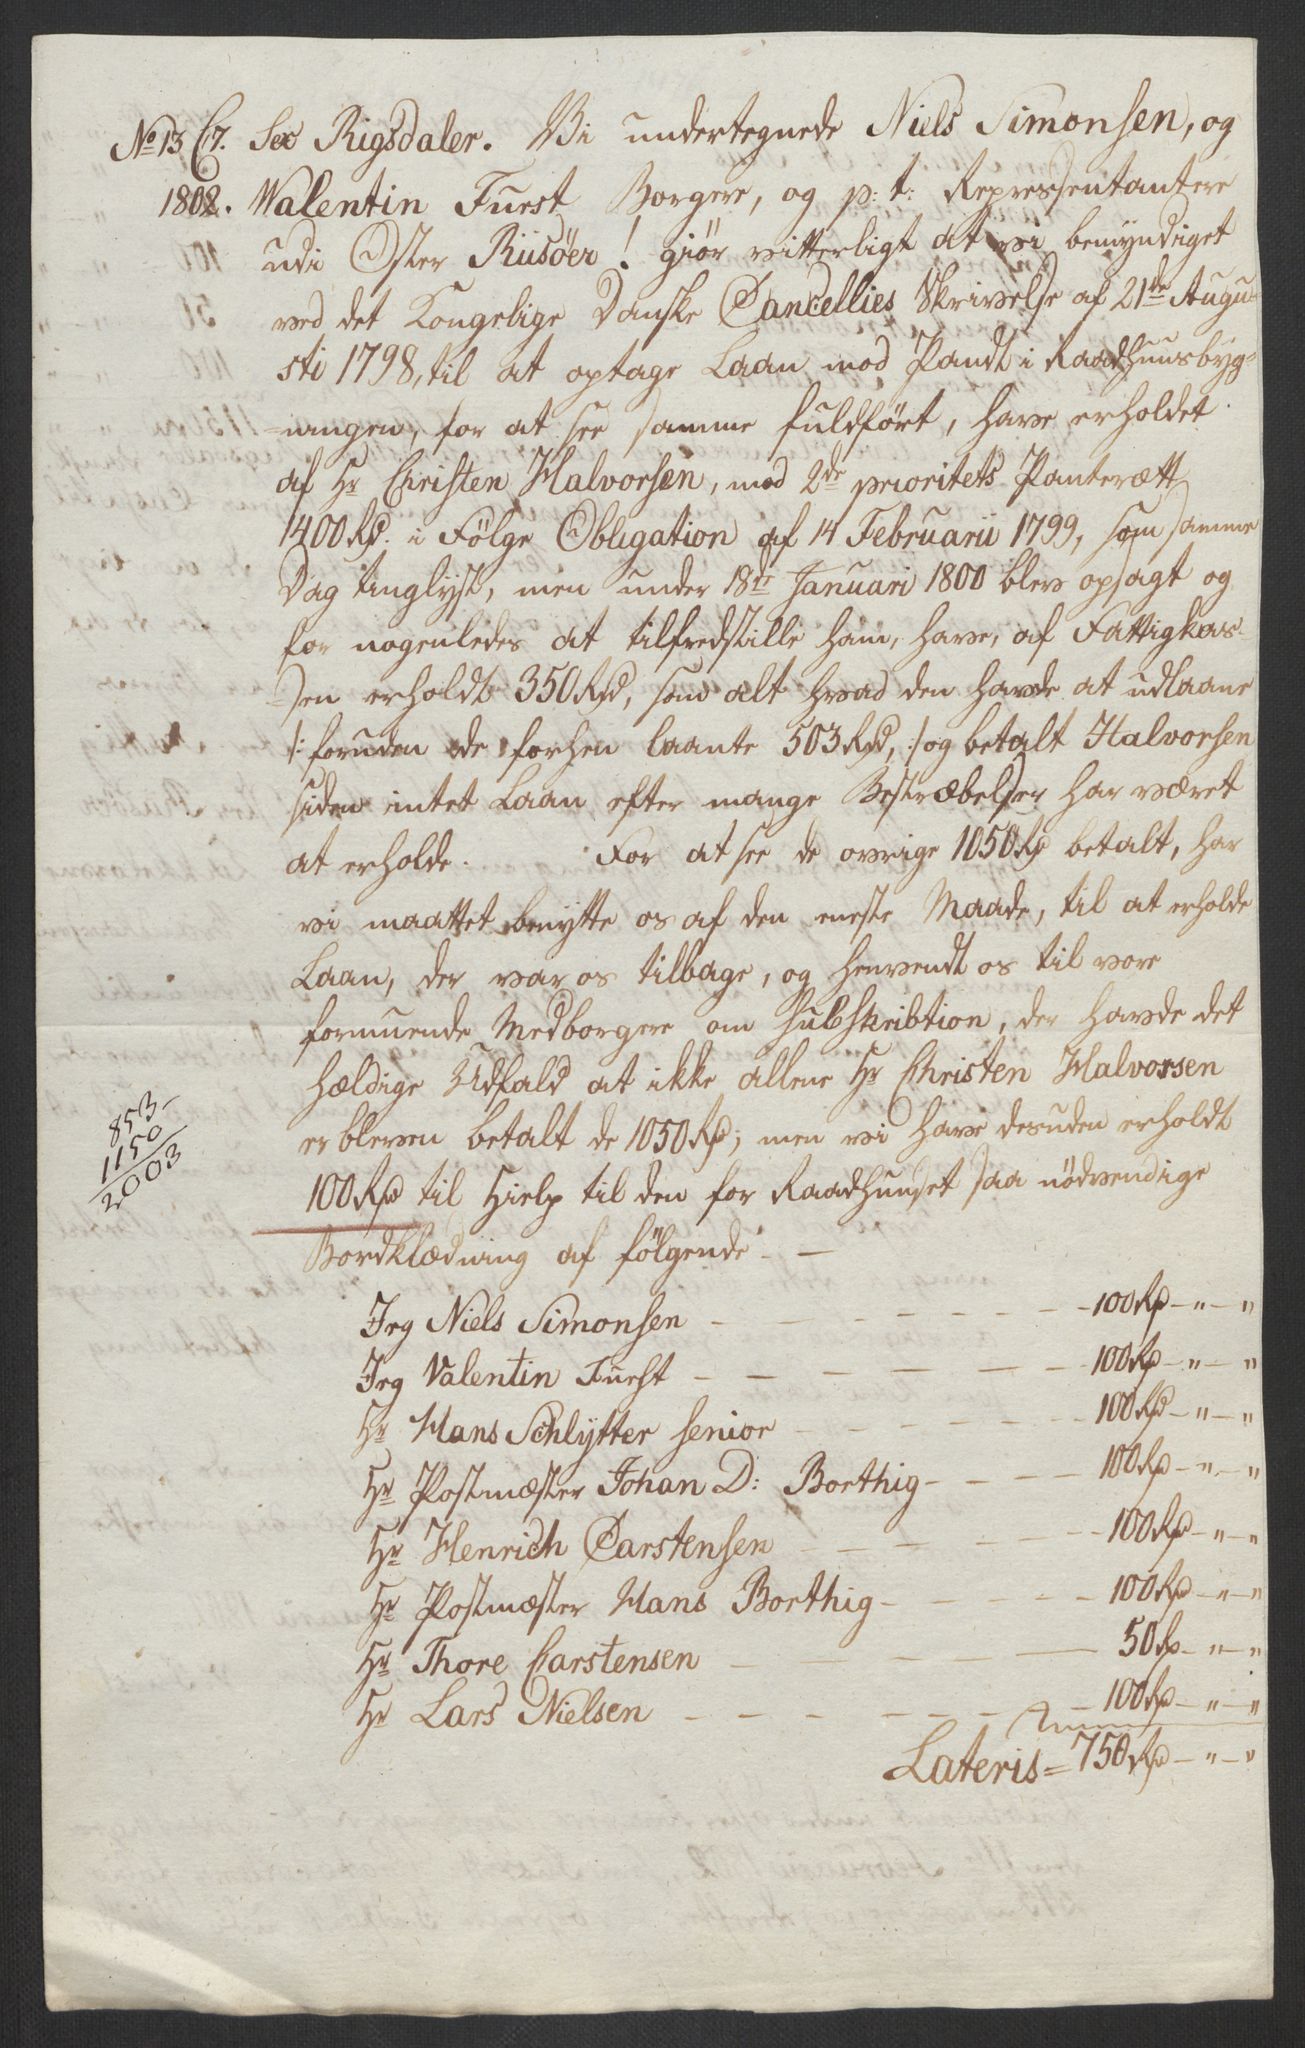 No 13 C7. Sex Rigsdaler. Vi undertegnede Niels Simonsen, og
1802. Walentin Fuest Borgere, og p: t: Repressentantere
udi Øster Riisöer! giör vitterligt at vi bemyndiget
ved det Kongelige Danske Cancellies Skrivelse af 21de Augu-
sti 1798, til at optage Laan mod Pandt i Raadhuusbyg-
ningen, for at see samme fuldfört, have erholdet
af Hr Christen Halvorsen, mod 2de prioritets Panterætt
1400 Rd. i Fölge Obligation af 14 Februarii 1799, som samme
Dag tinglyst, men under 18de Januari 1800 blev opsagt og
for nogenledes at tilfredstille ham, have, af Fattigkas-
sen erholdt 350 Rd, som alt hvad den havde at udlaane
/: foruden de forhen laante 503 Rd, :/ og betalt Halvorsen
siden intet Laan, efter mange Bestræbelser har været
at erholde. For at see de ovrige 1050 Rd betalt, har
vi maattet benytte os af den eneste Maade, til at erholde
Laan, der var os tilbage, og henvendt os til vore
formuende Medborgere om Subskribtion, der havde det
hældige Udfald at ikke allene Hr Christen Halvorsen
er bleven betalt de 1050 Rd; men vi have desuden erholdt
100 Rd til Hielp til den for Raadhuuset saa nödvendige
Bordklædning af fölgende - -
853 -
1150
2003
Jeg Niels Simonsen - - - - - 100 Rd - " - "
Jeg Valentin Fuest - - - - - 100 Rd - " - "
Hr Hans Schlytter senior - - - - - 100 Rd - " - "
Hr Postmæster Johan D: Borthig - - - - 100 Rd - " - "
Hr Henrich Carstensen - - - - - 100 Rd - " - "
Hr Postmæster Hans Borthig - - - - - 100 Rd - " - "
Hr Thore Carstensen - - - - - 50 Rd - " - "
Hr Lars Nielsen - - - - - - - 100 Rd - " - "
Lateris = 750 Rd - " - "